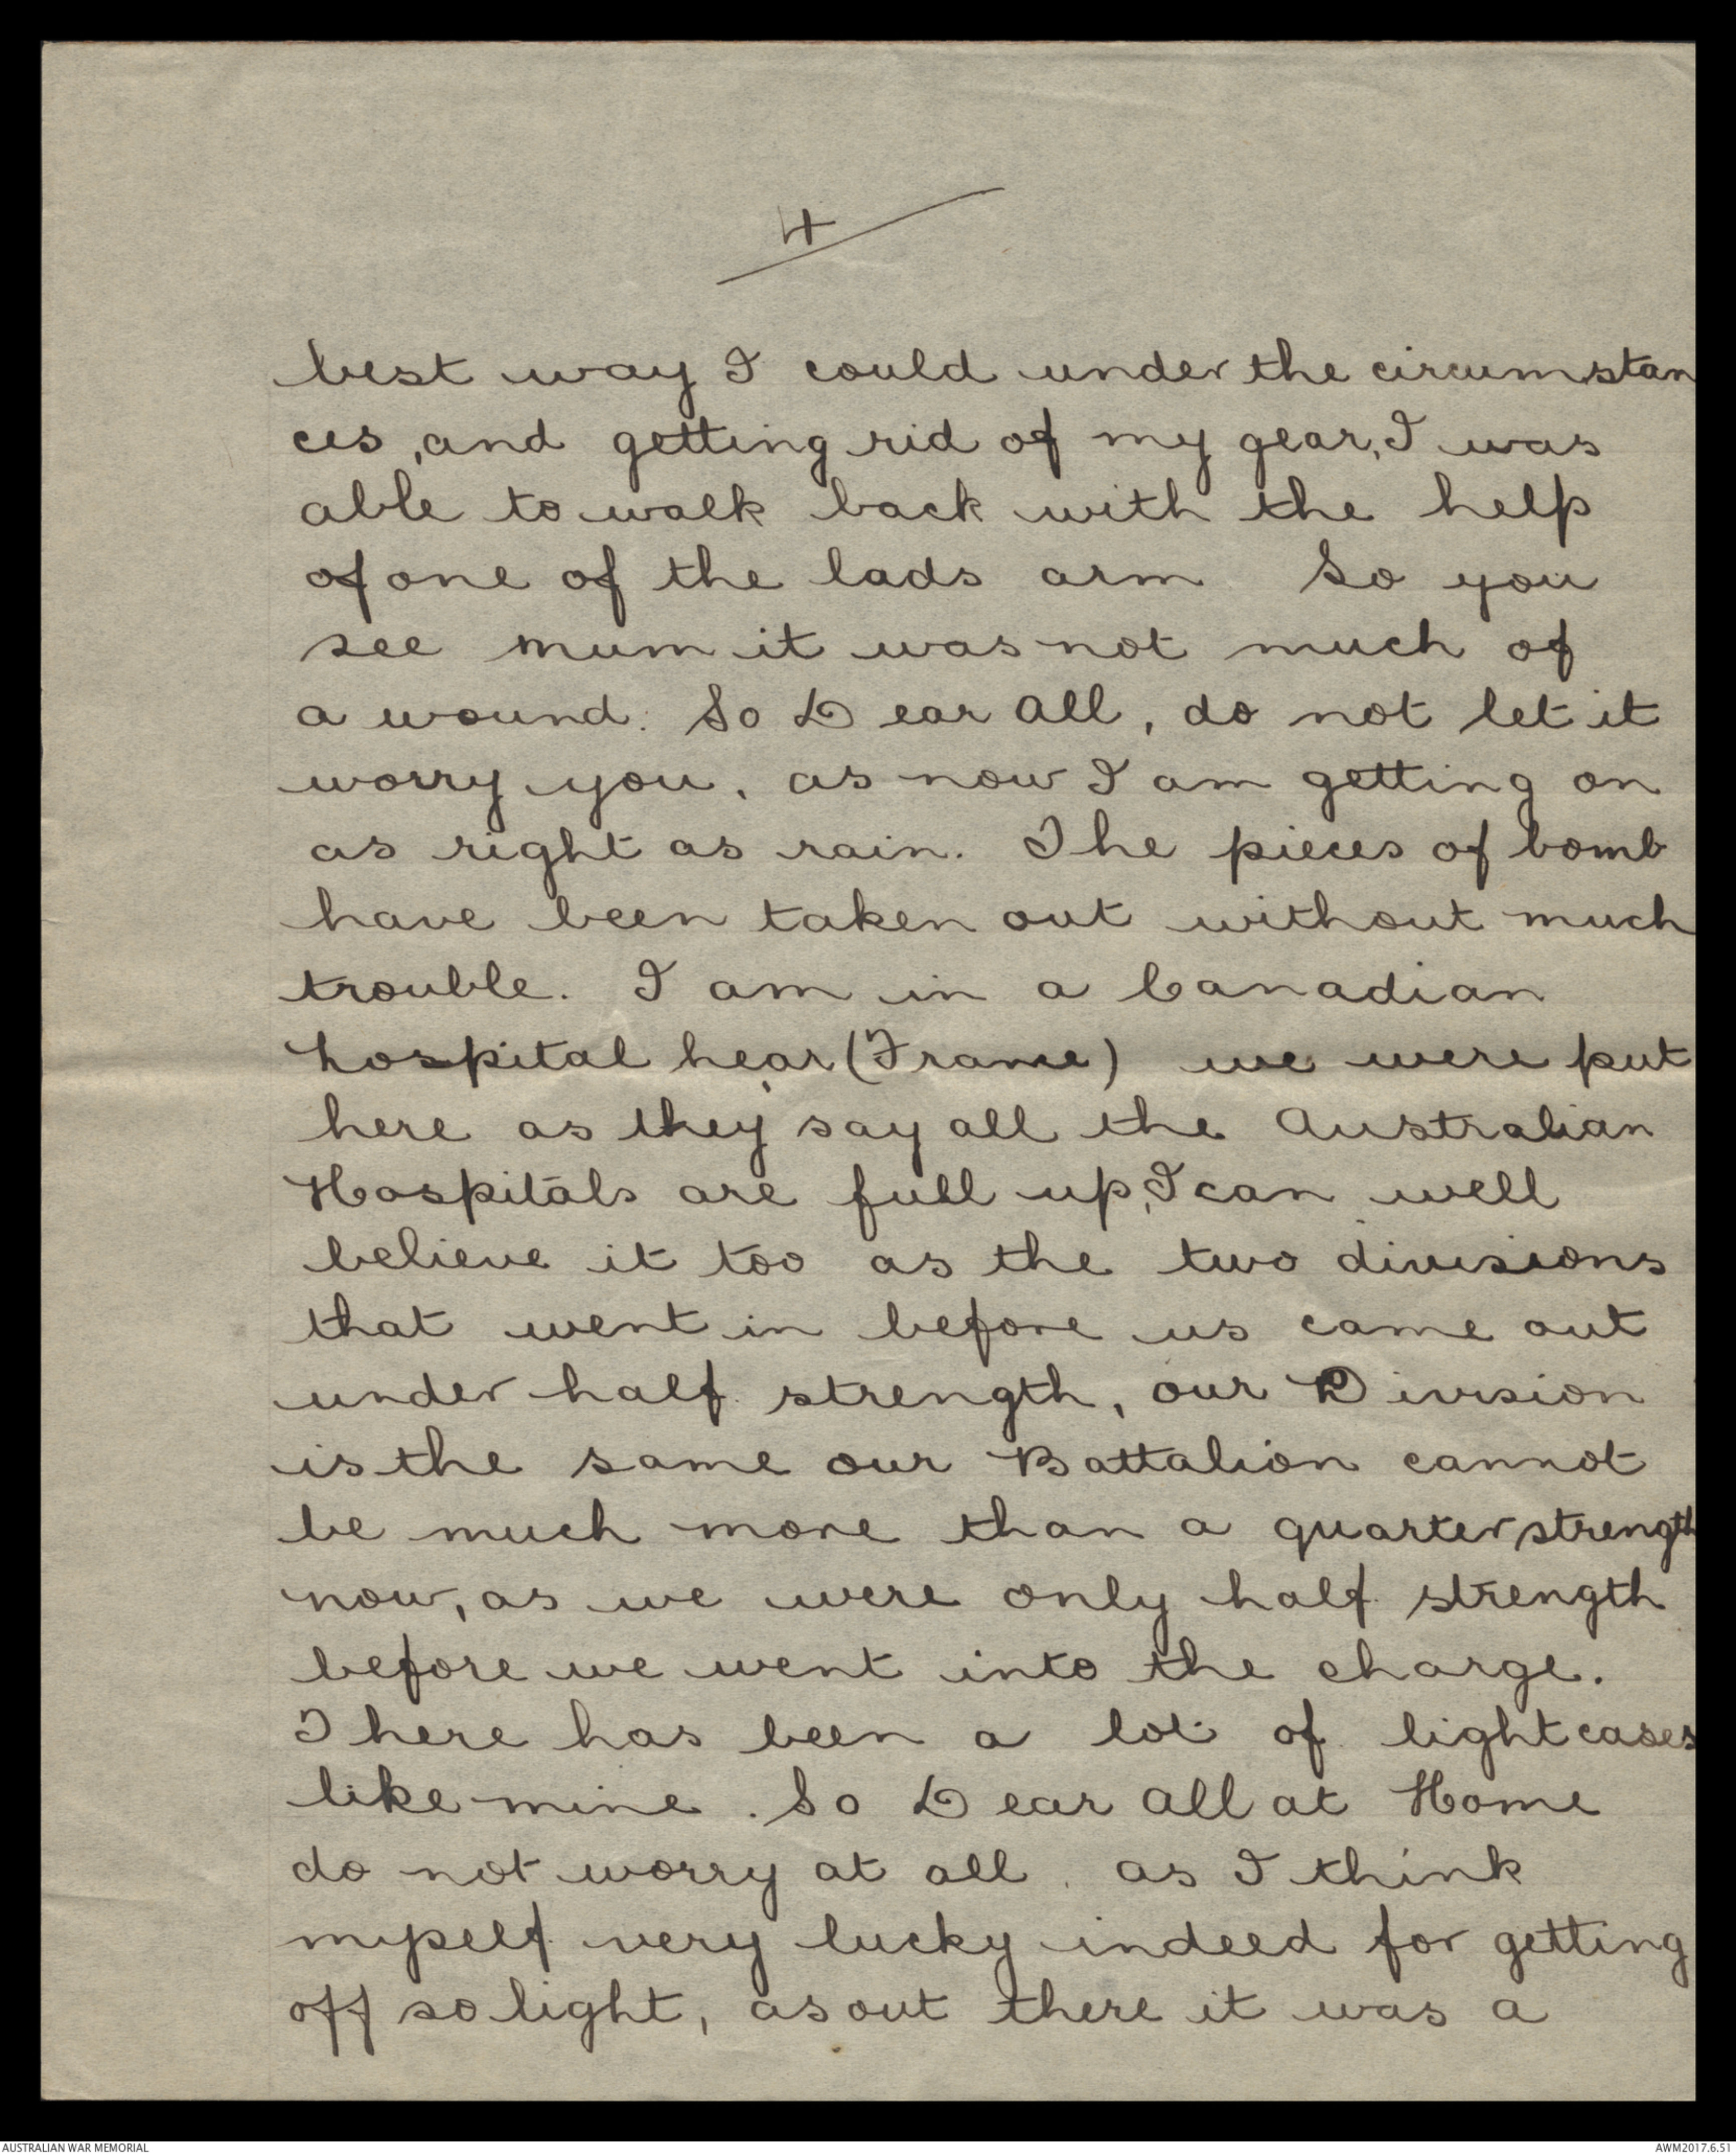 4
best way I could under the circumstan
ces, and getting rid of my gear, I was
able to walk back with the help
of one of the lads arm So you
see mum it was not much of
a wound. So Dear All, do not let it
worry you, as now I am getting on
as right as rain. The pieces of bomb
have been taken out without much
trouble. I am in a Canadian
hospital hear (France) we were put
here as they say all the Australian
Hospitals are full up, I can well
believe it too as the two divisions
that went in before us came out
under half strength, our Division
is the same our Battalion cannot
be much more than a quarter strength
now, as we were only half strength
before we went into the charge.
There has been a lot of light cases
like mine. So Dear All at Home
do not worry at all. as I think
myself very lucky indeed for getting
off so light, as out there it was a
AUSTRALIAN WAR MEMORIAL
AWM2017.6.51